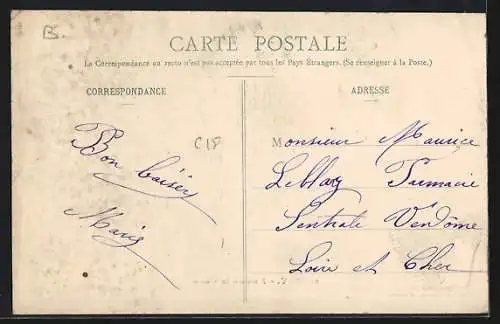 B.
CARTE POSTALE
La Correspondance au recto n'est pas acceptée par tous les Pays Étrangers. (Se renseigner à la Poste.)
CORRESPONDANCE
ADRESSE
C18
Bon baiser
Marie
Monsieur Maurice
Leblay Fumacie
Sentrale Vendôme
Loire et Cher